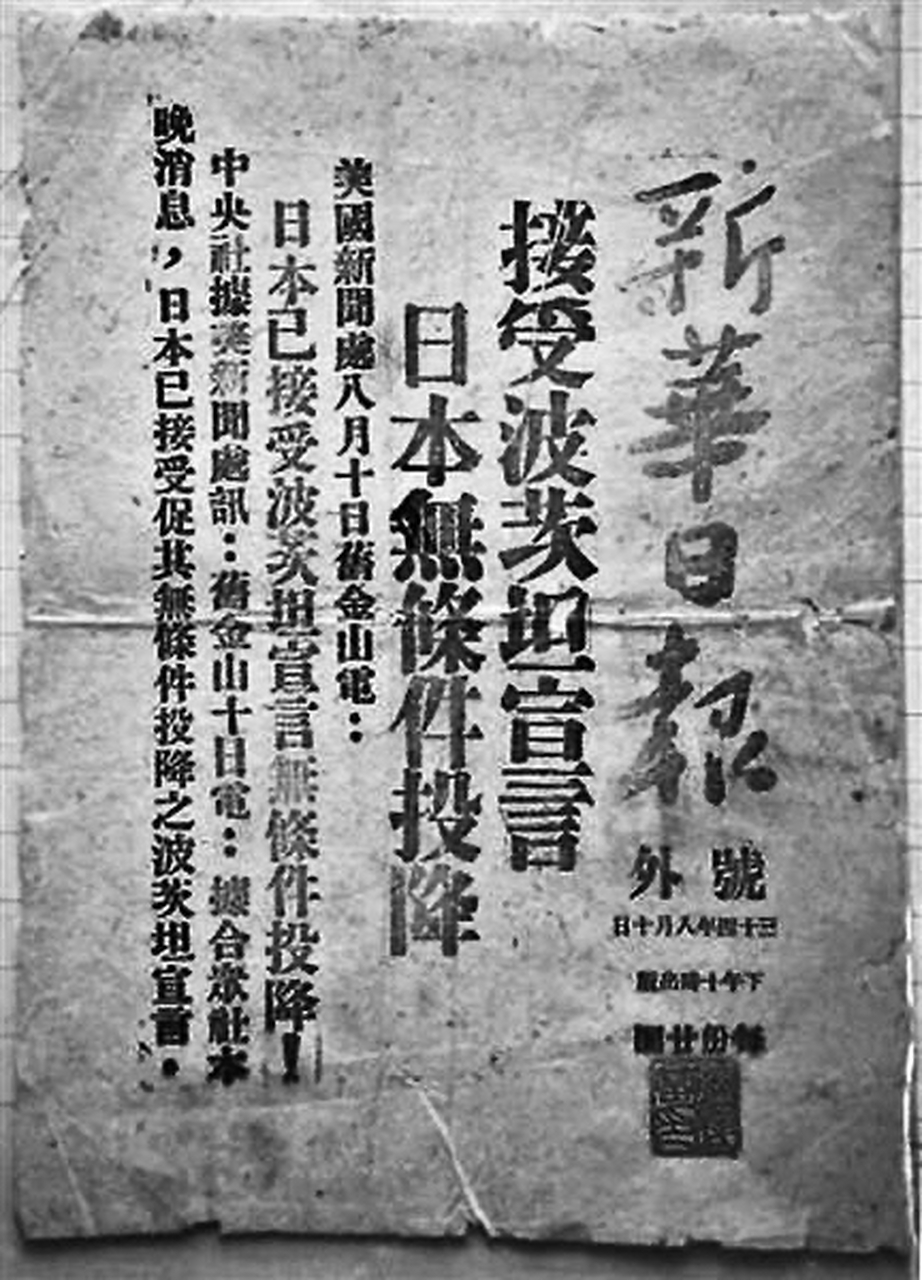 新華日報
號外
三十四年八月十日
下午十時出版
每份廿圓
接受波茨坦宣言
日本無條件投降
美國新聞處八月十日舊金山電：
日本已接受波茨坦宣言無條件投降！
中央社據美新聞處訊：舊金山十日電：據合眾社本
晚消息，日本已接受促其無條件投降之波茨坦宣言．